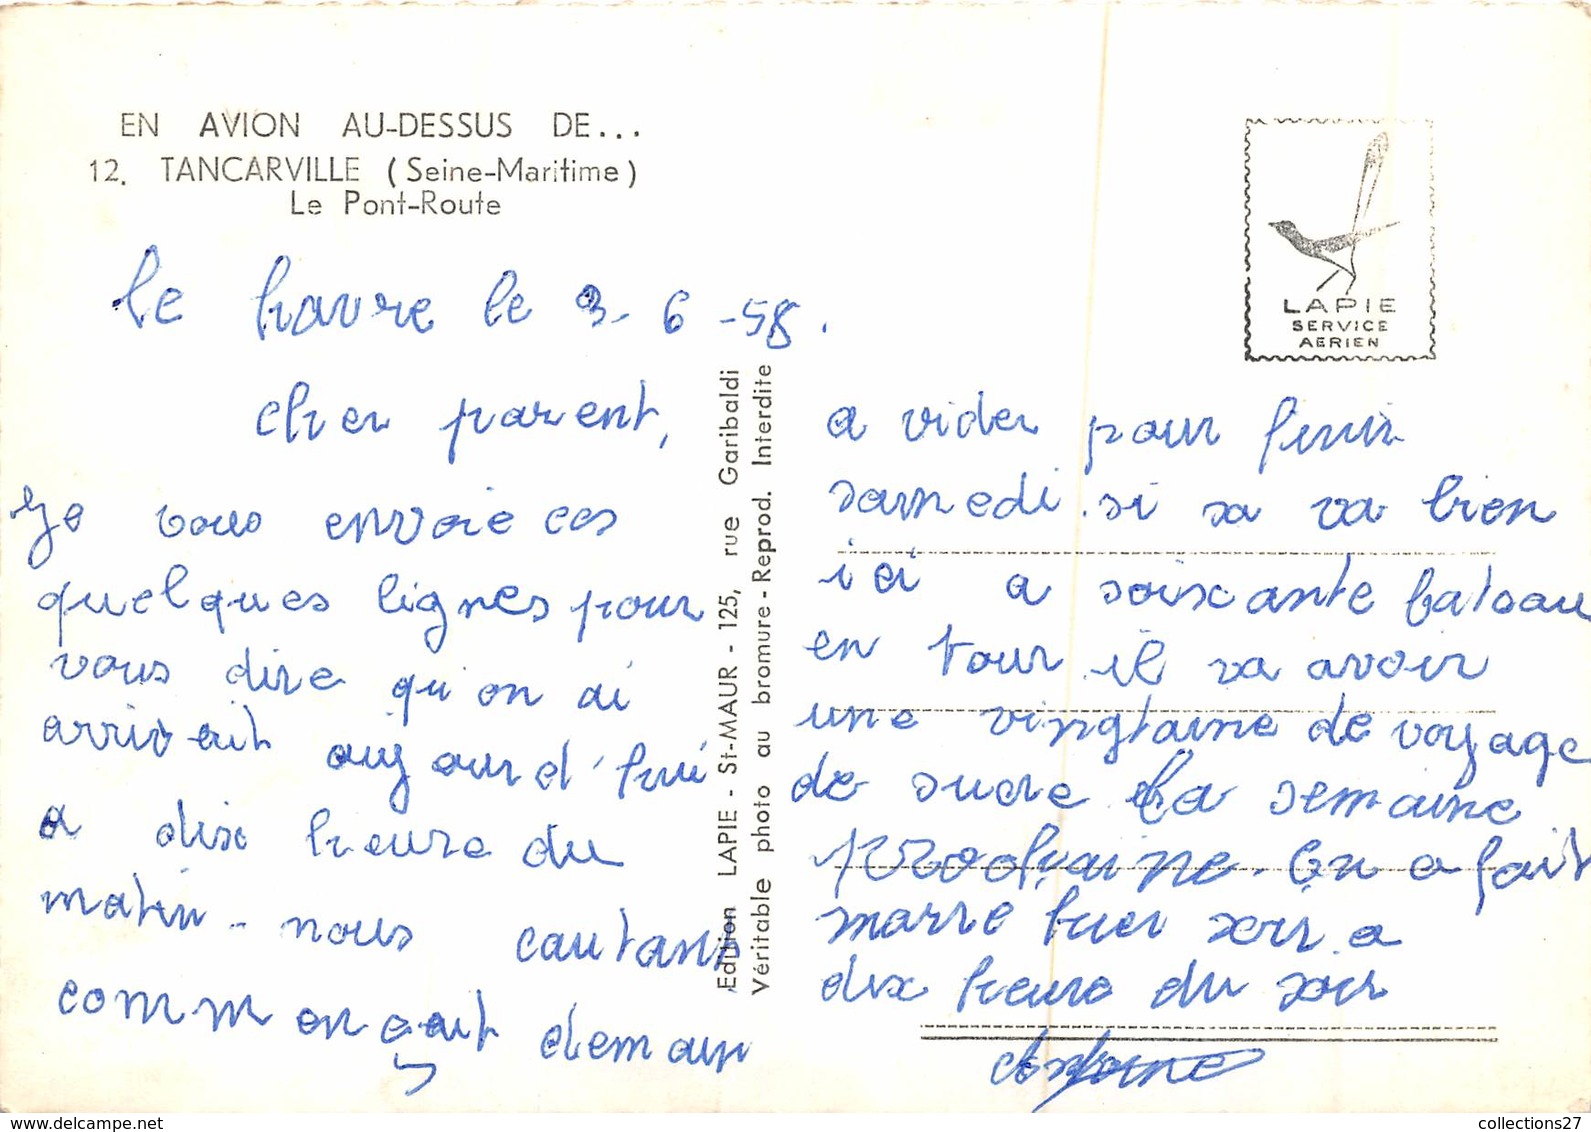 EN AVION AU-DESSUS DE...
12. TANCARVILLE (Seine-Maritime)
Le Pont-Route
le havre le 3-6-58.
cher parent,
Je vous envoie ces
quelques lignes pour
vous dire qu'on ai
arrivait aujourd'hui
a dix heure du
matin - nous
commençait demain
Edition LAPIE - St-MAUR - 125, rue Garibaldi
Véritable photo au bromure - Reprod. Interdite
LAPIE
SERVICE
AERIEN
a vider pour finir
samedi. si sa va bien
ici a soixante bateau
en tour il va avoir
une vingtaine de voyage
de sucre la semaine
prochaine. On a fait
marre hier soir a
dix heure du soir
Antoine
collections27